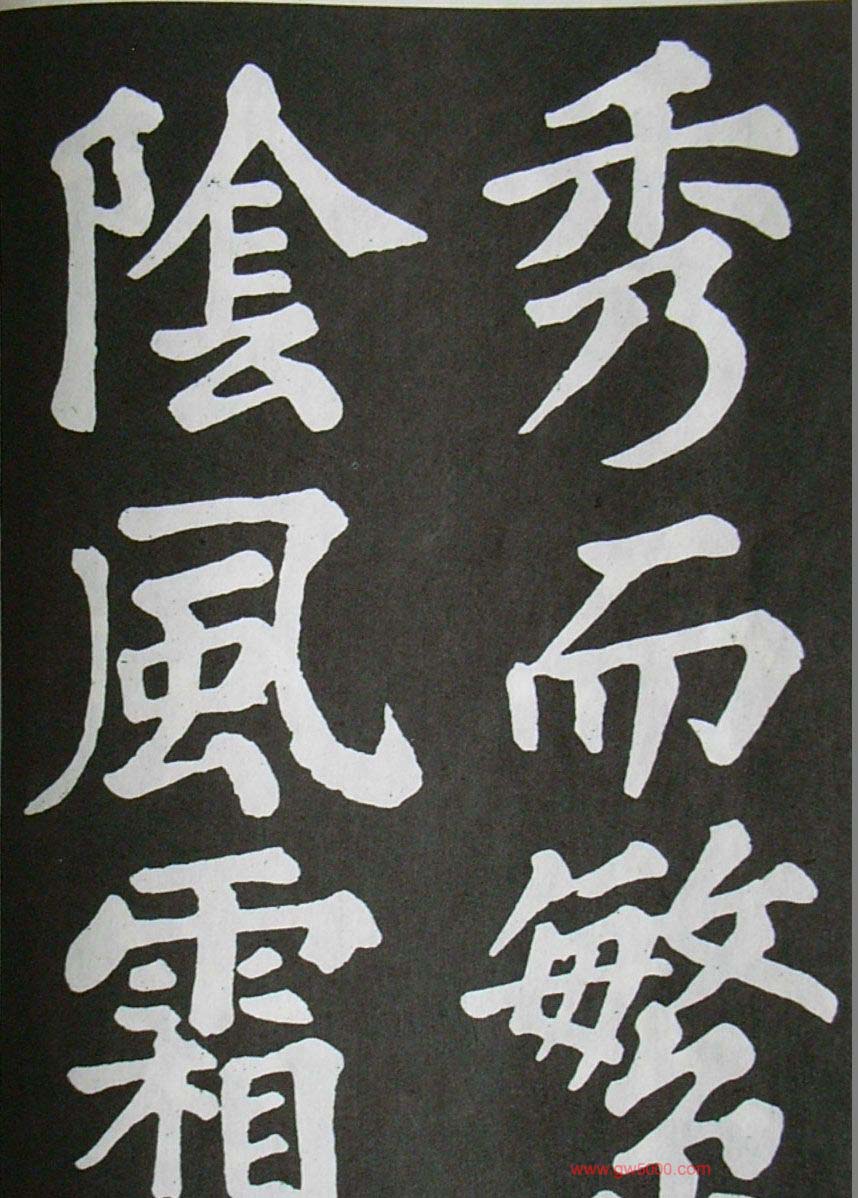 秀而繁
陰風霜
www.gw5000.com